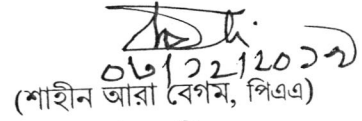 ০৩/১২/২০১৯
(শাহীন আরা বেগম, পিএএ)